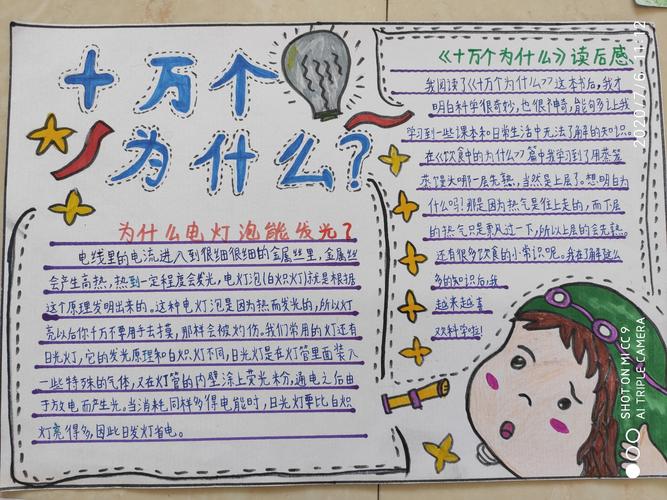 十万个
为什么?
为什么电灯泡能发光？
电线里的电流进入到很细很细的金属丝里,金属丝
会产生高热,热到一定程度会发光,电灯泡(白炽灯)就是根据
这个原理发明出来的。这种电灯泡是因为热而发光的,所以灯
亮以后你千万不要用手去摸,那样会被灼伤。我们常用的灯还有
日光灯,它的发光原理和白炽灯不同,日光灯是在灯管里面装入
一些特殊的气体,又在灯管的内壁涂上荧光粉,通电之后由
于放电而产生光。当消耗同样多得电能时,日光灯要比白炽
灯亮得多,因此日发灯省电。
《十万个为什么》读后感
我阅读了《十万个为什么》这本书后,我才
明白科学很奇妙,也很神奇,能够多让我
学习到一些课本和日常生活中无法了解的知识。
在《饮食中的为什么》篇中我学习到了用蒸笼
蒸馒头哪一层先熟,当然是上层了。想明白为
什么吗?那是因为热气是往上走的,而下层
的热气只是乘风过一下,所以上层的会先熟。
还有很多饮食的小常识呢。我在了解这么
多的知识后,我
越来越喜
欢科学啦!
2020/7/6 11:12
SHOT ON MI CC 9
AI TRIPLE CAMERA